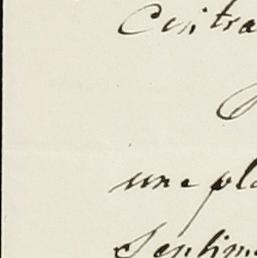 Centra
une pla
Sentime